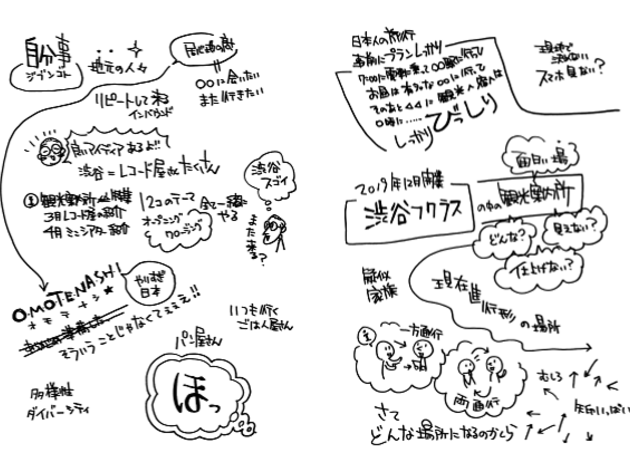 自分事
ジブンゴト
地元の人々
○○に会いたい
また行きたい
リピートして来る
インバウンド
良いアイディアあるよ!!
渋谷=レコード屋さんたくさん
渋谷
スゴイ
また来る?
3月レコード屋の紹介
4月ミニシアター紹介
12コのテーマ
オープニング
クロージング
全て一緒に
やる
O・MOTENASHI
オモテナシ
やりすぎ
日本
そういうことじゃなくてぇぇぇ!!
いつも行く
ごはん屋さん
パン屋さん
ほっ
多様性
ダイバーシティ
日本人の旅行
事前にプランしっかり
7:00に電車に乗って○○駅に行って
お昼は有名な○○に行って
そのあと△△に観光
○時に……
しっかりびっしり
現地で
スマホ見ない?
面白い場
2019年12月開業
渋谷フクラス
の中の観光案内所
どんな?
見えない?
仕上げない?
疑似
家族
現在進行形の場所
一方通行
両通行
むしろ
矢印いっぱい
さて
どんな場所になるのかしら